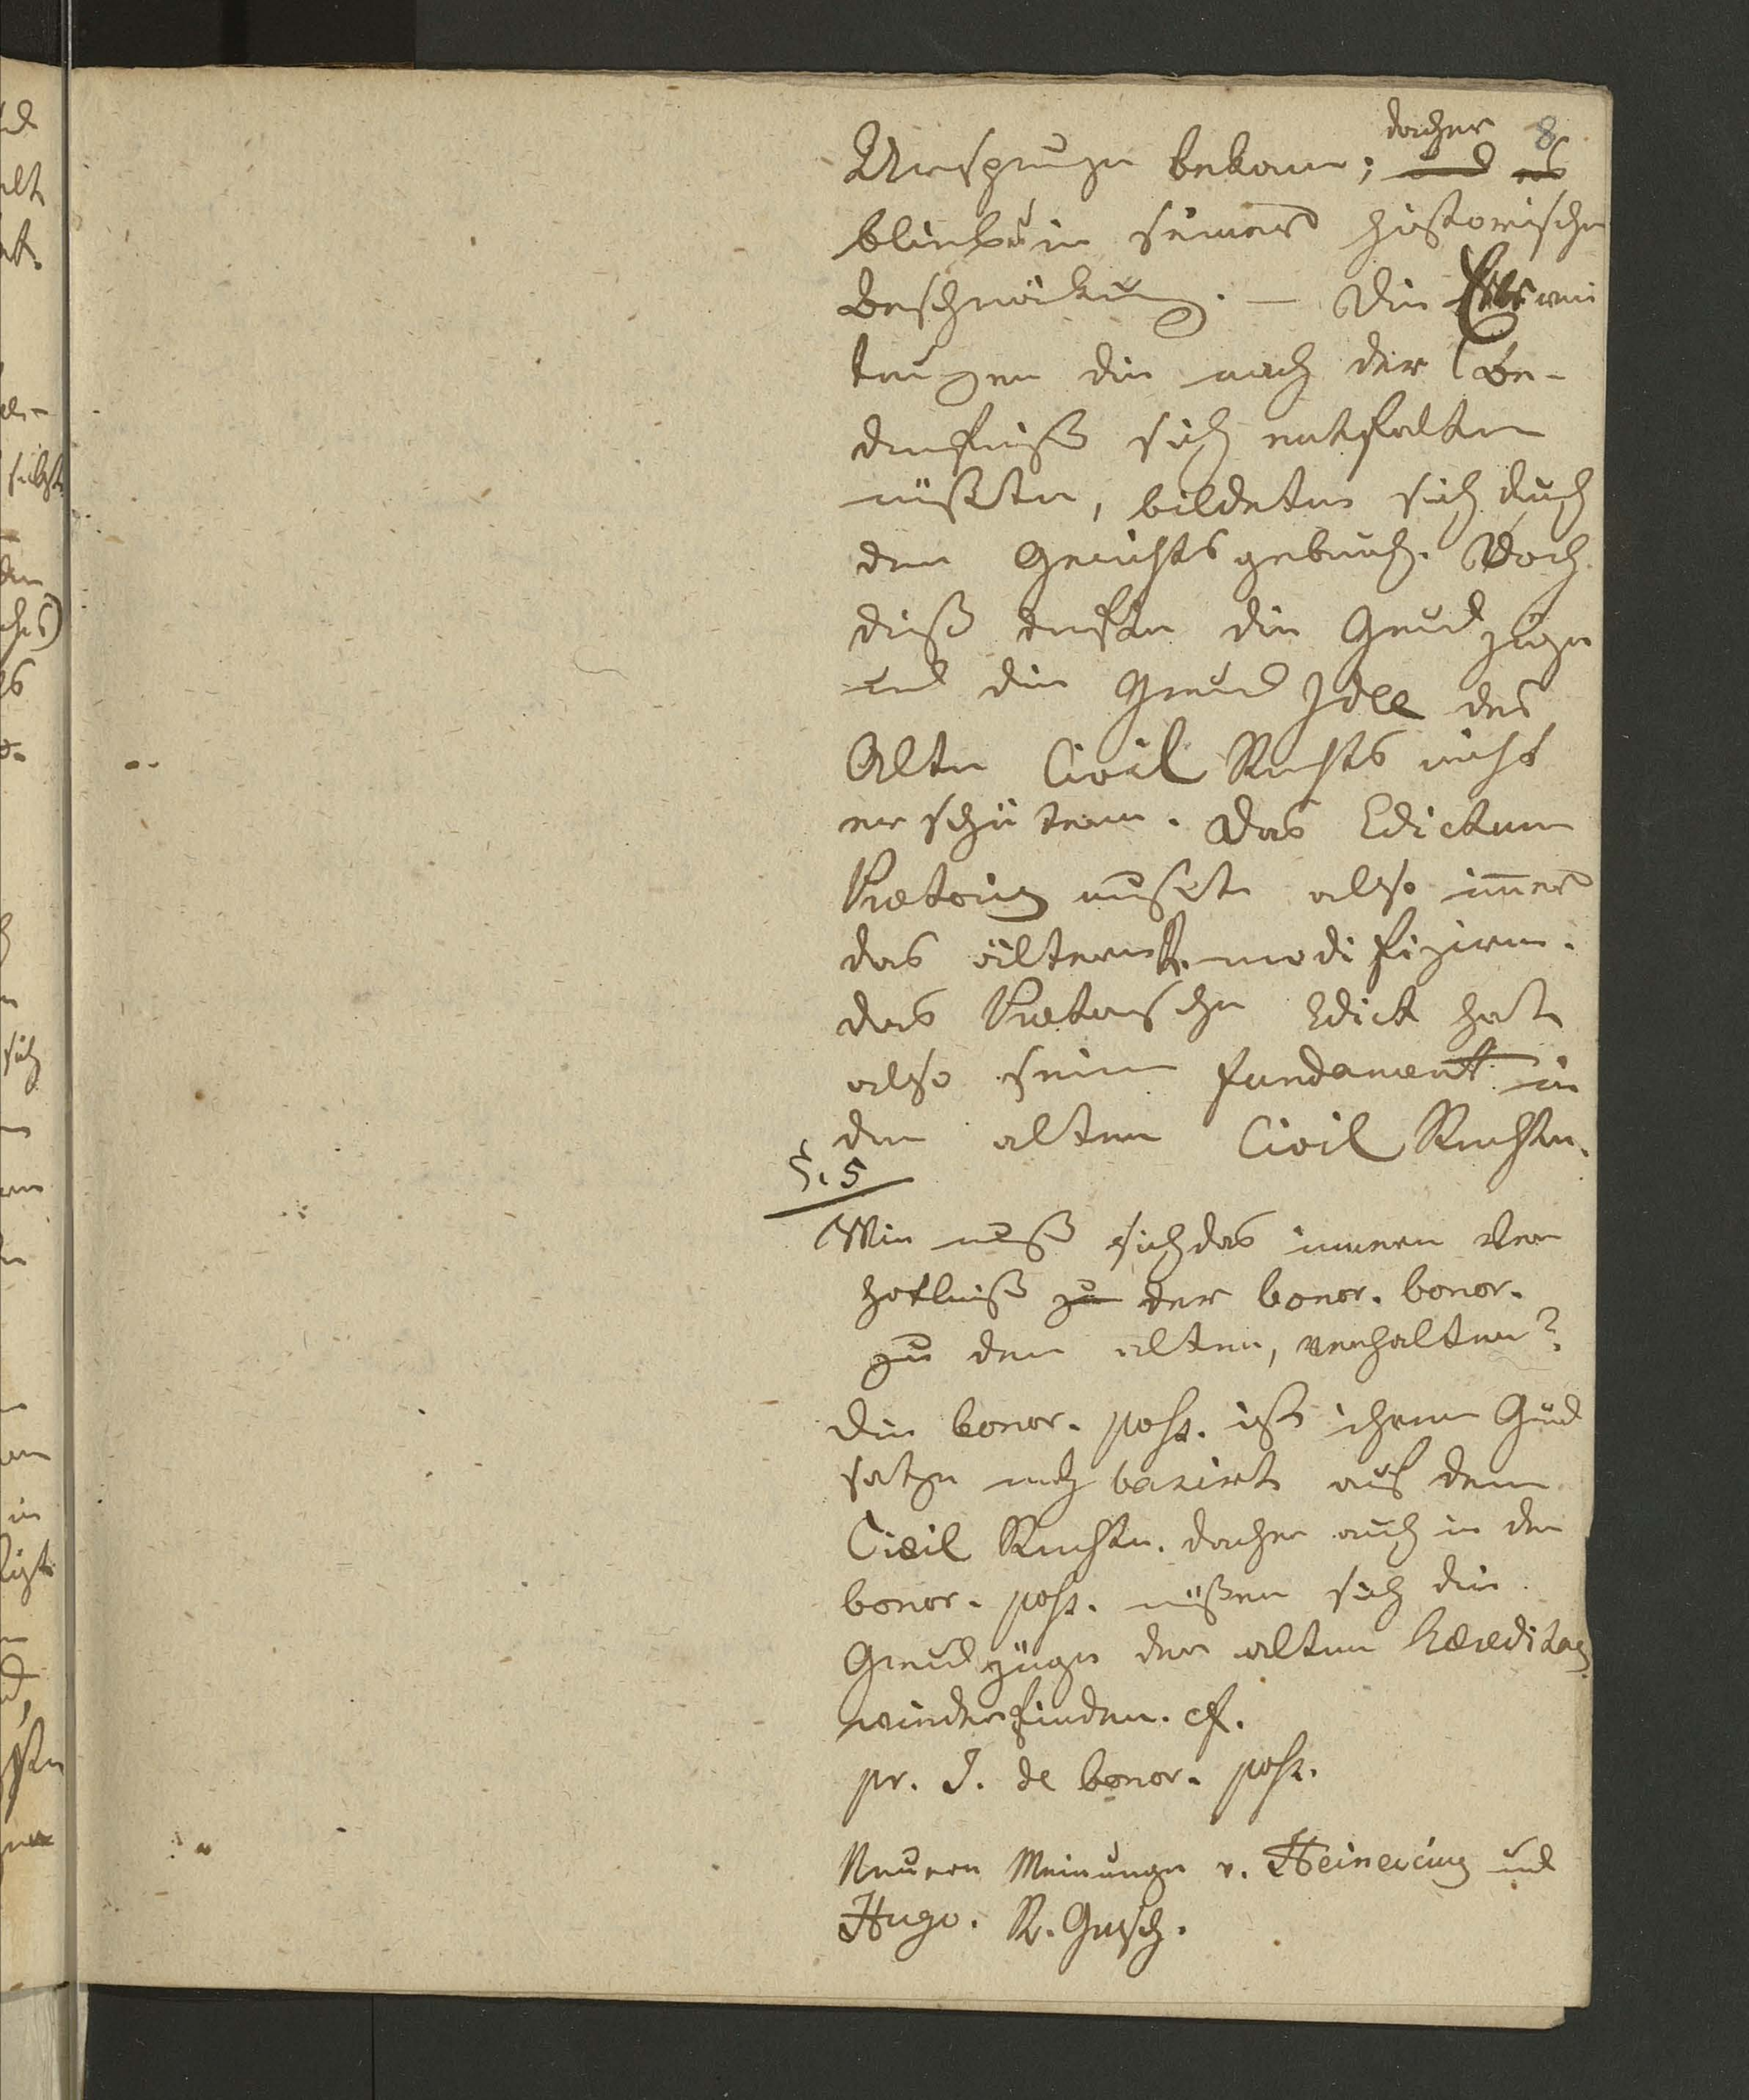 daher 8
Ursprunge bekam; und es
blieb in seiner historischen
Beschränkung. — Die Erwei
terungen die nach der Be-
dürfniß sich entfalten
müßten, bildeten sich durch
den Gerichtsgebrauch. Doch
dieß durfte die Grundzüge
und die Grund Idee des
Alten Civil Rechts nicht
erschütern. Das Edictum
Prætoris mußte also immer
das ältere R. modifiziren.
das Prætorische Edict hat
also sein Fundament in
den alten Civil Rechten.
§. 5
Wie muß sich das innere Ver
hältniß zu der bonor. bonor.
zu den alten, verhalten?
Die bonor. poss. ist ihrem Grund
satze nach basirt auf dem
Civil Rechte. Daher auch in der
bonor. poss. müßen sich die
Grundzüge der alten Hæreditas
wiederfinden. cf.
pr. J. de bonor. poss.
Neuere Meinungen v. Heineccius und
Hugo. R. Gesch.